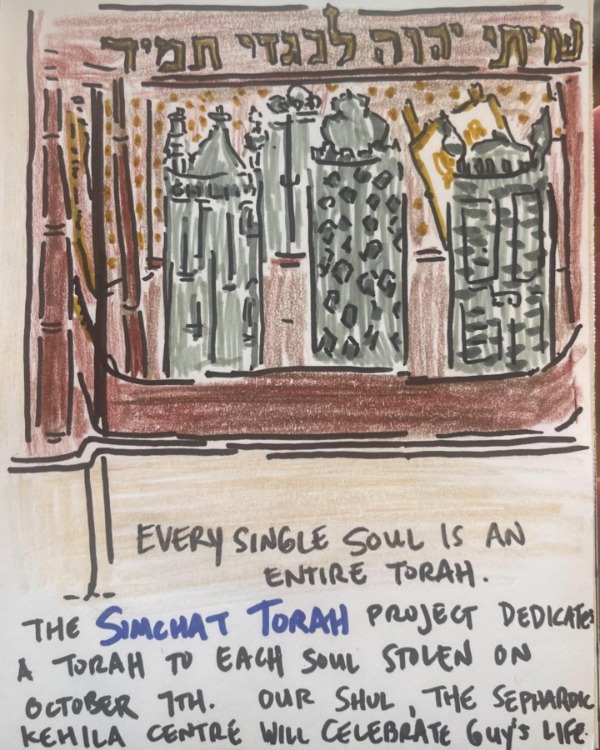 שויתי יהוה לנגדי תמיד
EVERY SINGLE SOUL IS AN
ENTIRE TORAH.
THE SIMCHAT TORAH PROJECT DEDICATES
A TORAH TO EACH SOUL STOLEN ON
OCTOBER 7TH. OUR SHUL, THE SEPHARDIC
KEHILA CENTRE WILL CELEBRATE GUY'S LIFE.